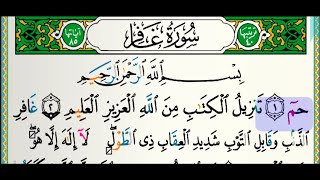 سُورَةُ غَافِر
بِسْمِ ٱللَّهِ ٱلرَّحْمَٰنِ ٱلرَّحِيمِ
حمٓ ١ تَنزِيلُ ٱلْكِتَٰبِ مِنَ ٱللَّهِ ٱلْعَزِيزِ ٱلْعَلِيمِ ٢ غَافِرِ
ٱلذَّنۢبِ وَقَابِلِ ٱلتَّوْبِ شَدِيدِ ٱلْعِقَابِ ذِى ٱلطَّوْلِ ۖ لَآ إِلَٰهَ إِلَّا هُوَ ۖ